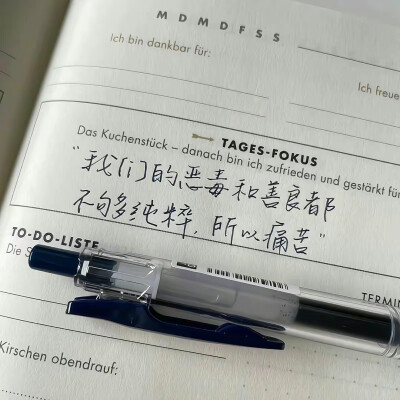 M D M D F S S
Ich bin dankbar für:
Ich freue
TAGES-FOKUS
Das Kuchenstück – danach bin ich zufrieden und gestärkt für
"我们的恶毒和善良都
不够多纯粹，所以痛苦"
TO-DO-LISTE
Die S
TERMIN
Kirschen obendrauf: